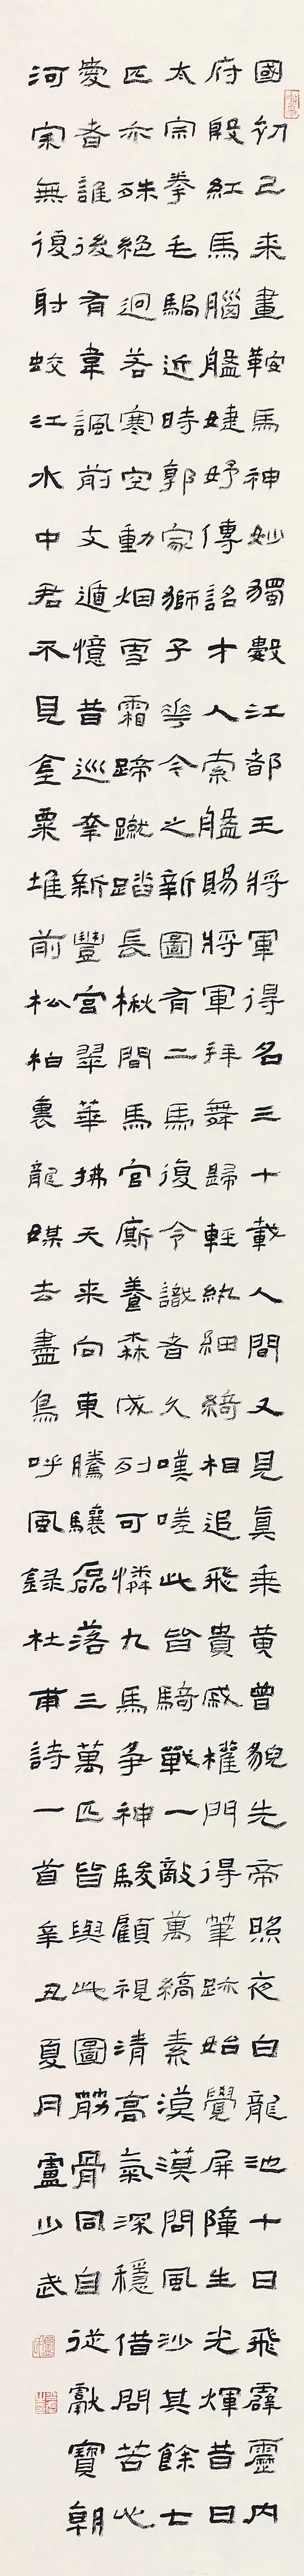 國初已来畫鞍馬神妙獨數江都王將軍得名三十載人間又見真乘黄曾貌先帝照夜白龍池十日飛霹靈内
府殷紅馬腦盤婕妤傳詔才人索盤賜將軍拜舞歸輕紈細綺相追飛貴戚權門得筆跡始覺屏障生光輝昔日
太宗拳毛騧近時郭家獅子花今之新圖有二馬復令識者久嘆嗟此皆騎戰一敵萬縞素漠漠開風沙其餘七
匹亦殊絕迥若寒空動烟雪霜蹄蹴踏長楸間馬官廝養森成列可憐九馬爭神駿顧視清高氣深穩借問苦心
愛者誰後有韋諷前支遁憶昔巡幸新豐宮翠華拂天来向東騰驤磊落三萬匹皆與此圖筋骨同自從獻寶朝
河宗無復射蛟江水中君不見金粟堆前松柏裏龍媒去盡鳥呼風錄杜甫詩一首辛丑夏月盧少武